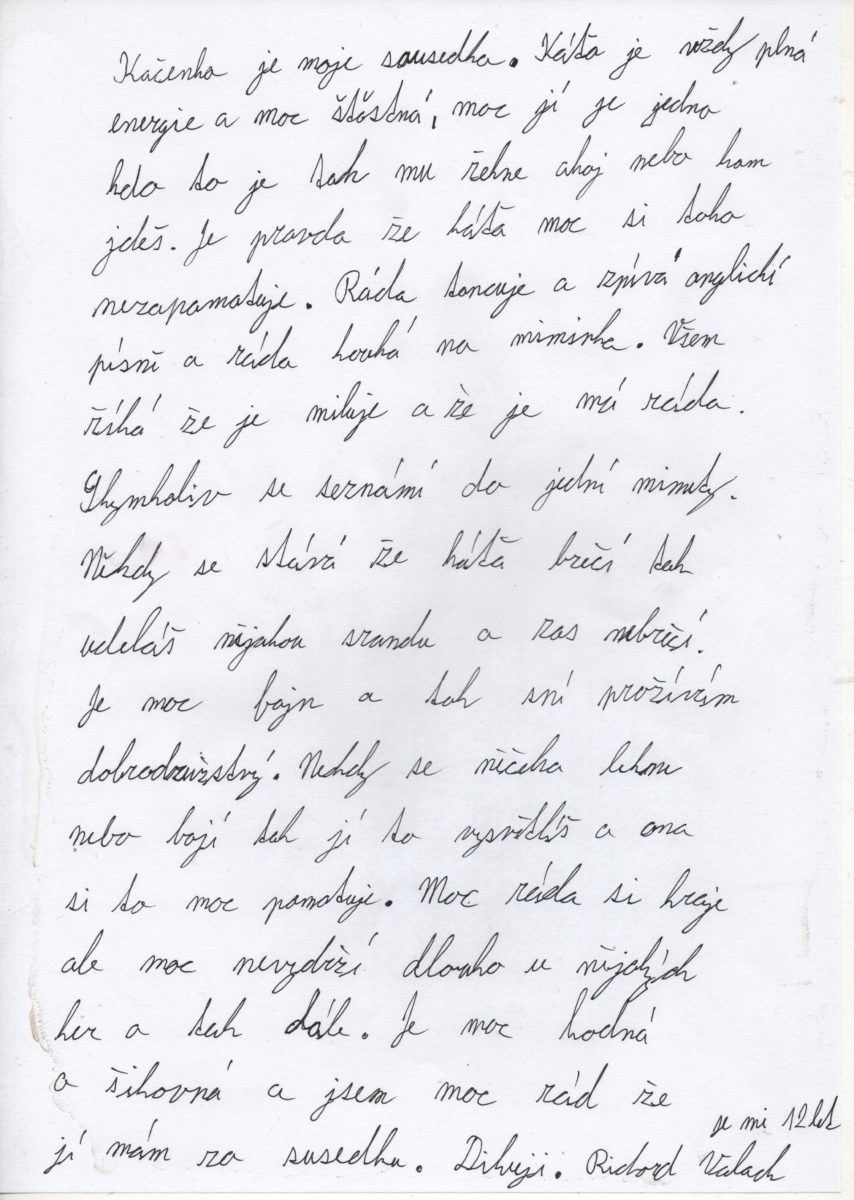 Káčenka je moje sousedka. Káťa je vždy plná
energie a moc šťastná, moc jí je jedno
kdo to je tak mu řekne ahoj nebo kam
jdeš. Je pravda že káťa moc si toho
nezapamatuje. Ráda tancuje a zpívá anglickí
písně a ráda kouká na miminka. Všem
říká že je miluje a že je má ráda.
se seznámí do jední minuty.
Někdy se stává že káťa brečí tak
uděláš nějakou srandu a zas nebrečí.
Je moc fajn a tak sní prožívám
dobrodružství. Nekdy se něčeho lekne
nebo bojí tak jí to vysvětlíš a ona
si to moc pamatuje. Moc ráda si hraje
ale moc nevydrží dlouho u nějakých
her a tak dále. Je moc hodná
a šikovná a jsem moc rád že
jí mám za susedku. Díkuji. Richard Valach
je mi 12 let